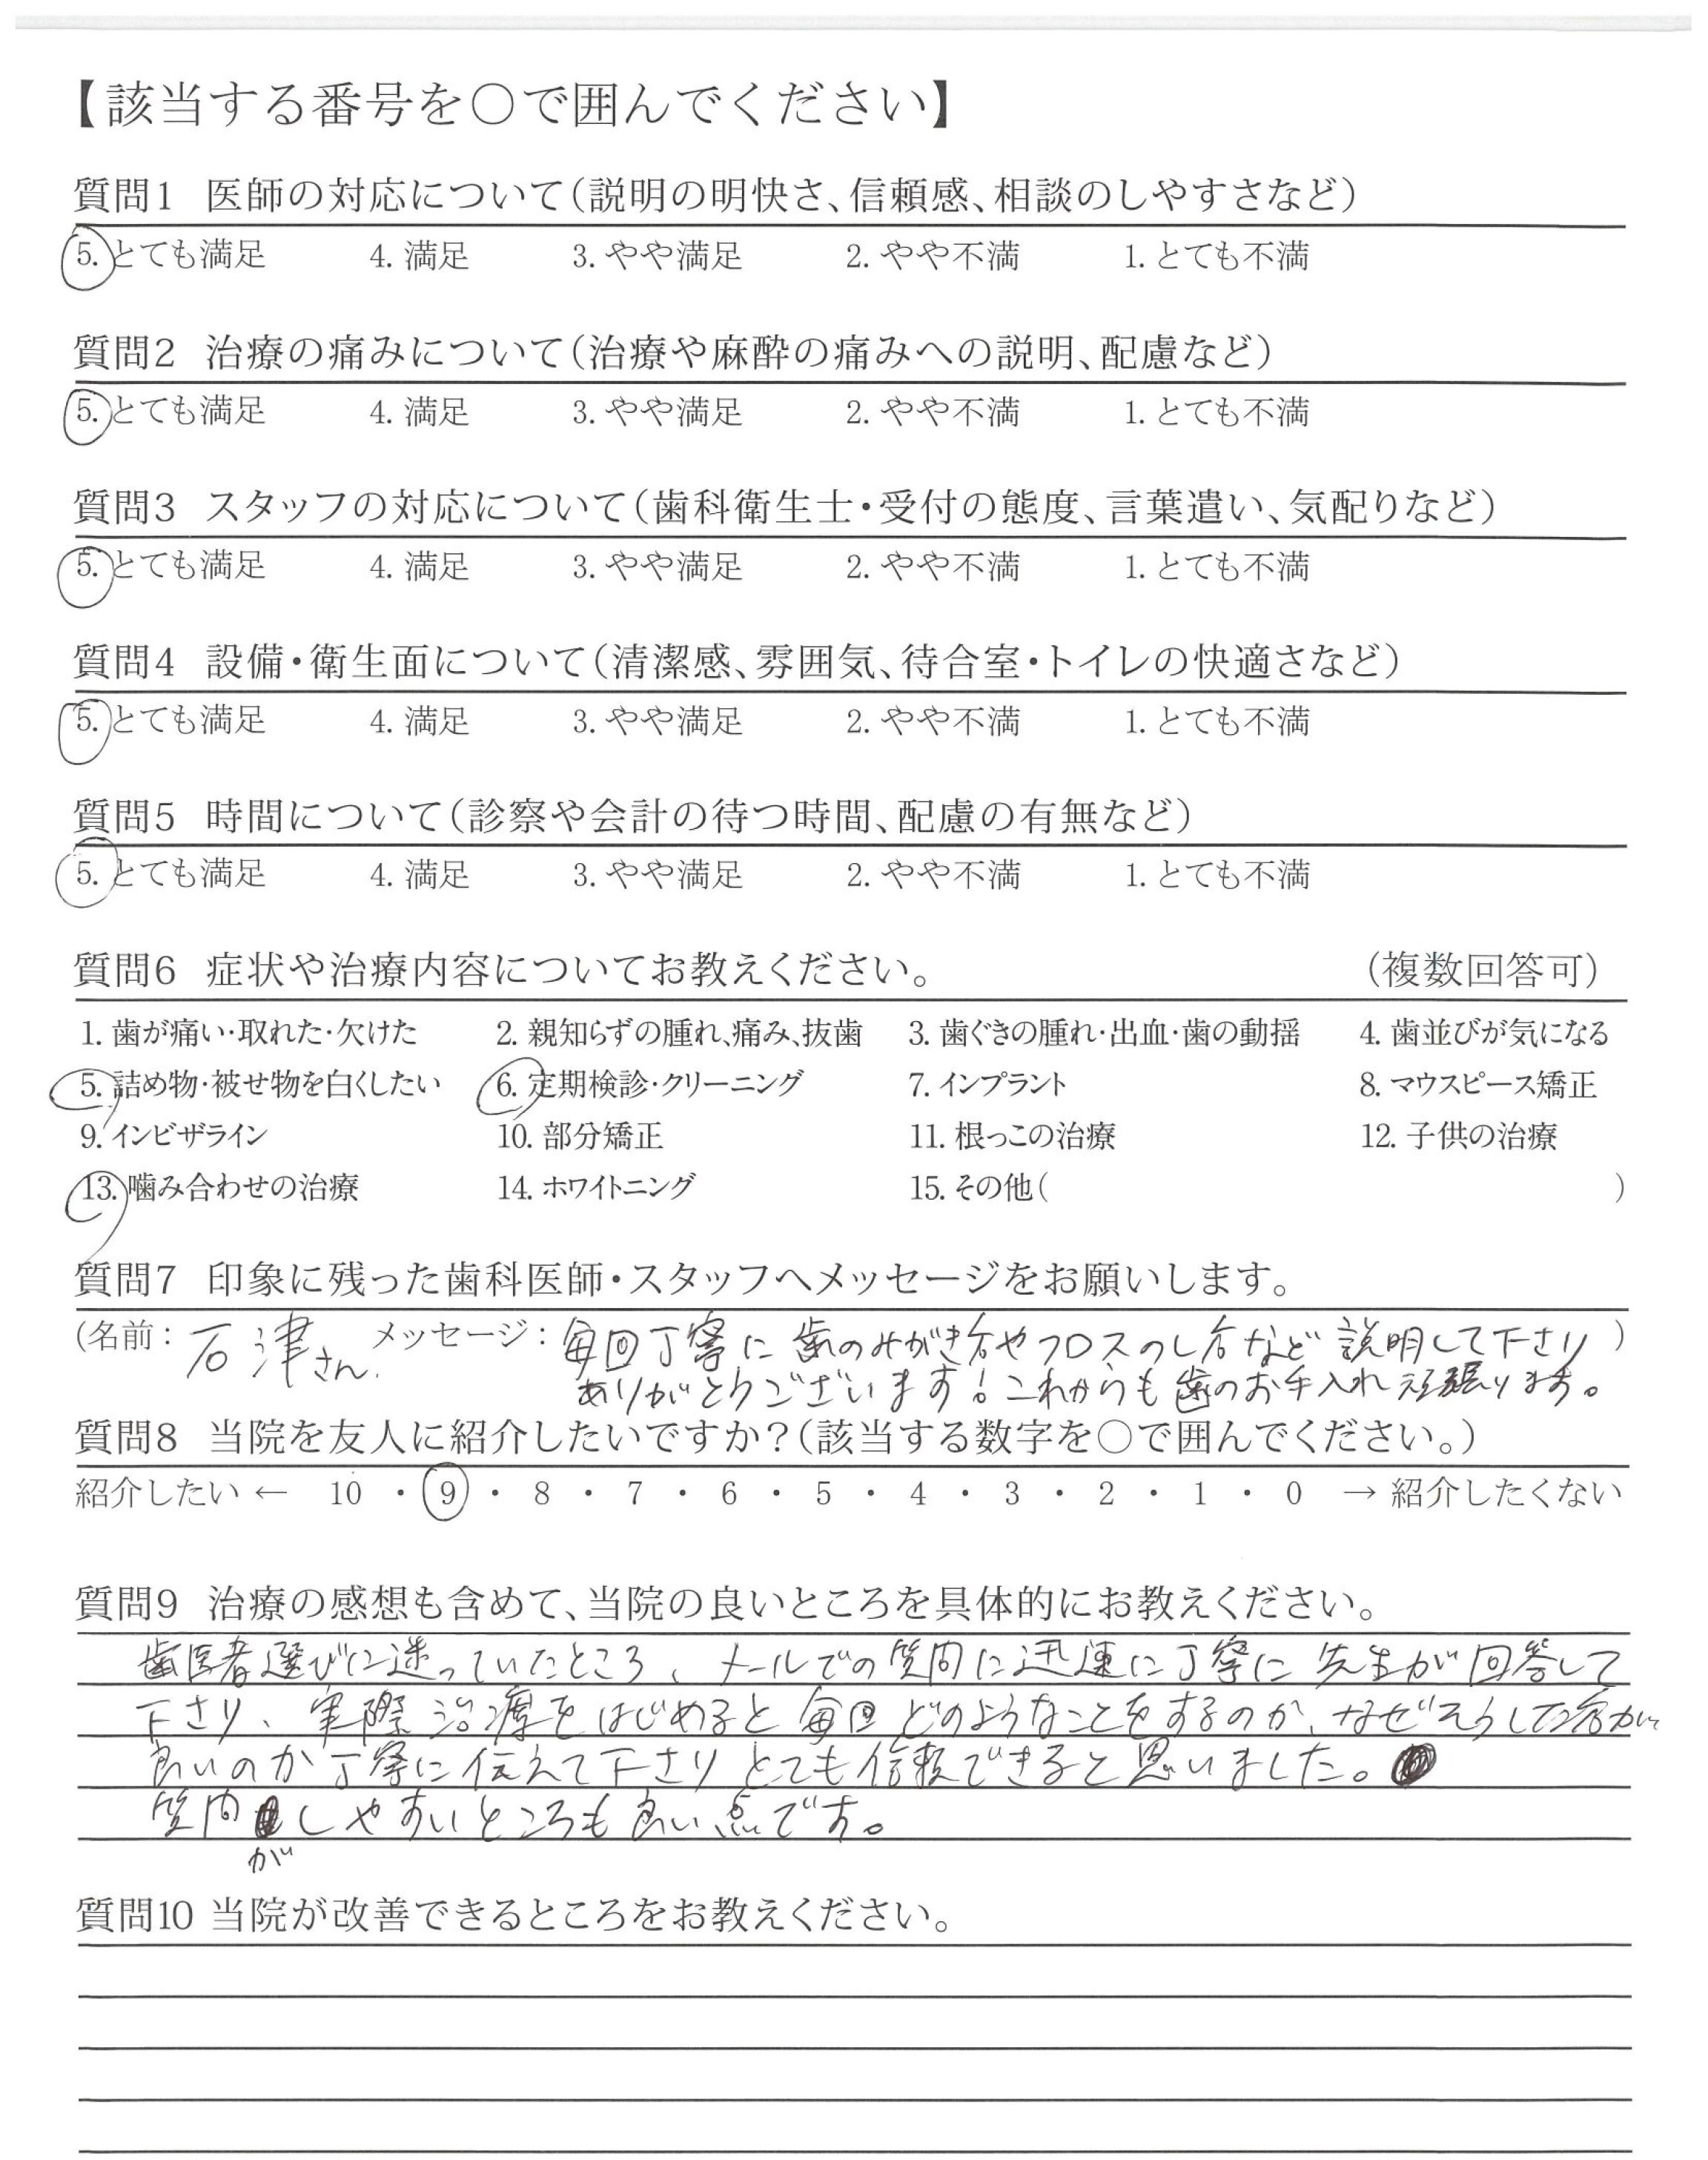 【該当する番号を〇で囲んでください】
質問1 医師の対応について(説明の明快さ、信頼感、相談のしやすさなど)
5. とても満足 4. 満足 3. やや満足 2. やや不満 1. とても不満
質問2 治療の痛みについて(治療や麻酔の痛みへの説明、配慮など)
5. とても満足 4. 満足 3. やや満足 2. やや不満 1. とても不満
質問3 スタッフの対応について(歯科衛生士・受付の態度、言葉遣い、気配りなど)
5. とても満足 4. 満足 3. やや満足 2. やや不満 1. とても不満
質問4 設備・衛生面について(清潔感、雰囲気、待合室・トイレの快適さなど)
5. とても満足 4. 満足 3. やや満足 2. やや不満 1. とても不満
質問5 時間について(診察や会計の待つ時間、配慮の有無など)
5. とても満足 4. 満足 3. やや満足 2. やや不満 1. とても不満
質問6 症状や治療内容についてお教えください。 (複数回答可)
1. 歯が痛い・取れた・欠けた 2. 親知らずの腫れ、痛み、抜歯 3. 歯ぐきの腫れ・出血・歯の動揺 4. 歯並びが気になる
5. 詰め物・被せ物を白くしたい 6. 定期検診・クリーニング 7. インプラント 8. マウスピース矯正
9. インビザライン 10. 部分矯正 11. 根っこの治療 12. 子供の治療
13. 噛み合わせの治療 14. ホワイトニング 15. その他( )
質問7 印象に残った歯科医師・スタッフへメッセージをお願いします。
(名前: 石津さん. メッセージ: 毎回丁寧に歯のみがき方やフロスのし方など説明して下さり )
ありがとうございます!これからも歯のお手入れ頑張ります。
質問8 当院を友人に紹介したいですか?(該当する数字を〇で囲んでください。)
紹介したい ← 10 ・ 9 ・ 8 ・ 7 ・ 6 ・ 5 ・ 4 ・ 3 ・ 2 ・ 1 ・ 0 → 紹介したくない
質問9 治療の感想も含めて、当院の良いところを具体的にお教えください。
歯医者選びに迷っていたところ、メールでの質問に迅速に丁寧に先生が回答して
下さり、実際治療をはじめると毎回どのようなことをするのか、なぜそうした方がい
良いのか丁寧に伝えて下さりとても信頼できると思いました。
質問がしやすいところも良い点です。
質問10 当院が改善できるところをお教えください。